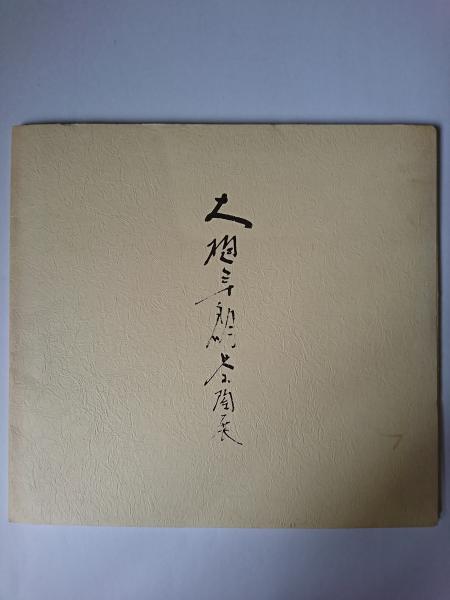 大樋年朗茶陶展